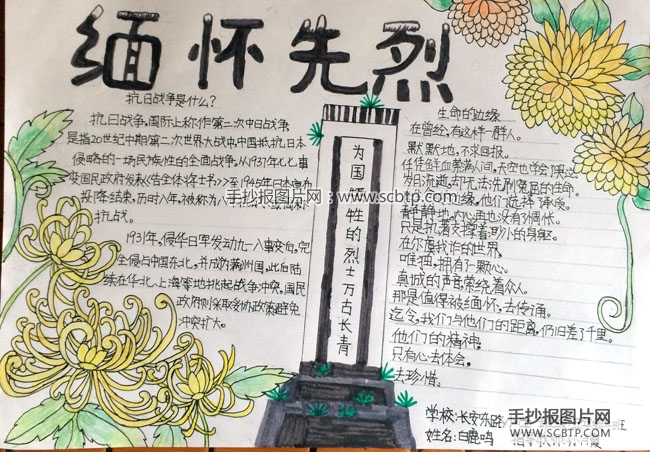 缅怀先烈
抗日战争是什么？
抗日战争，国际上称作第二次中日战争，
是指20世纪中期第二次世界大战中中国抵抗日本
侵略的一场民族性的全面战争。从1937年七七事
变国民政府发表《告全体将士书》至1945年日本
投降结束，历时八年，被称为八年
抗战。
1931年，侵华日军发动九一八事变后，完
全侵占中国东北，并成立满洲国，此后陆
续在华北、上海等地挑起战争冲突，国民
政府则采取妥协政策避免
冲突扩大。
为国牺牲的烈士万古长青
生命的边缘
在曾经，有这样一群人。
默默地，不求回报。
任凭鲜血萦满人间，天空也
岁月流逝，却无法洗刷
他们选择
静静地，内心再也没有了惆怅。
只是扎着支撑着弱小的身躯。
在尔虞我诈的世界，
唯独，拥有一颗心。
真诚的声音萦绕着众人。
那是值得被缅怀，去传诵。
迄今，我们与他们的距离，仍旧差了千里。
他们的精神，
只有心去体会，
去珍惜。
学校：长安东路 班
姓名：白鹿鸣
手抄报图片网：www.scbtp.com
手抄报图片网
www.SCBTP.com